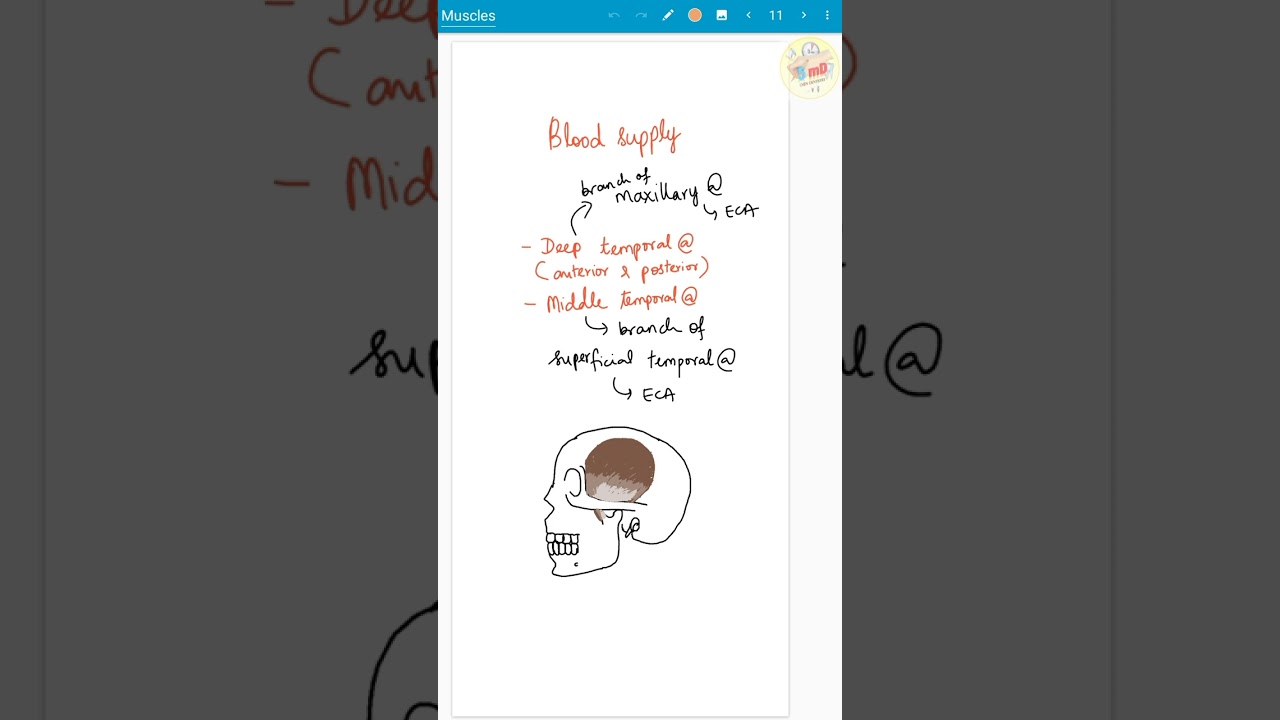 Muscles
11
BmD
Blood supply
branch of
maxillary @
ECA
- Deep temporal @
(anterior & posterior)
- Middle temporal @
branch of
superficial temporal @
ECA